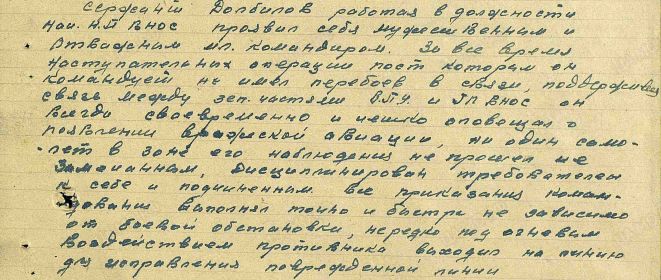 Сержант Долбилов работая в должности
Нач. Н.П ВНОС проявил себя мужественным и
Отважным мл. командиром. За все время
наступательных операции пост которым он
командует не имел перебоев в связи, поддерживая
связь между зен. частями и ВНОС он
всегда своевременно и четко оповещал о
появлении вражеской авиации, ни один само-
лет в зоне его наблюдения не прошел не
Замечанным, дисциплинирован требователен
к себе и подчиненным. Все приказания коман-
дования выполнял точно и быстро не зависимо
от боевой обстановки, нередко под огневым
воздействием противника выходил на линию
для исправления поврежденной линии